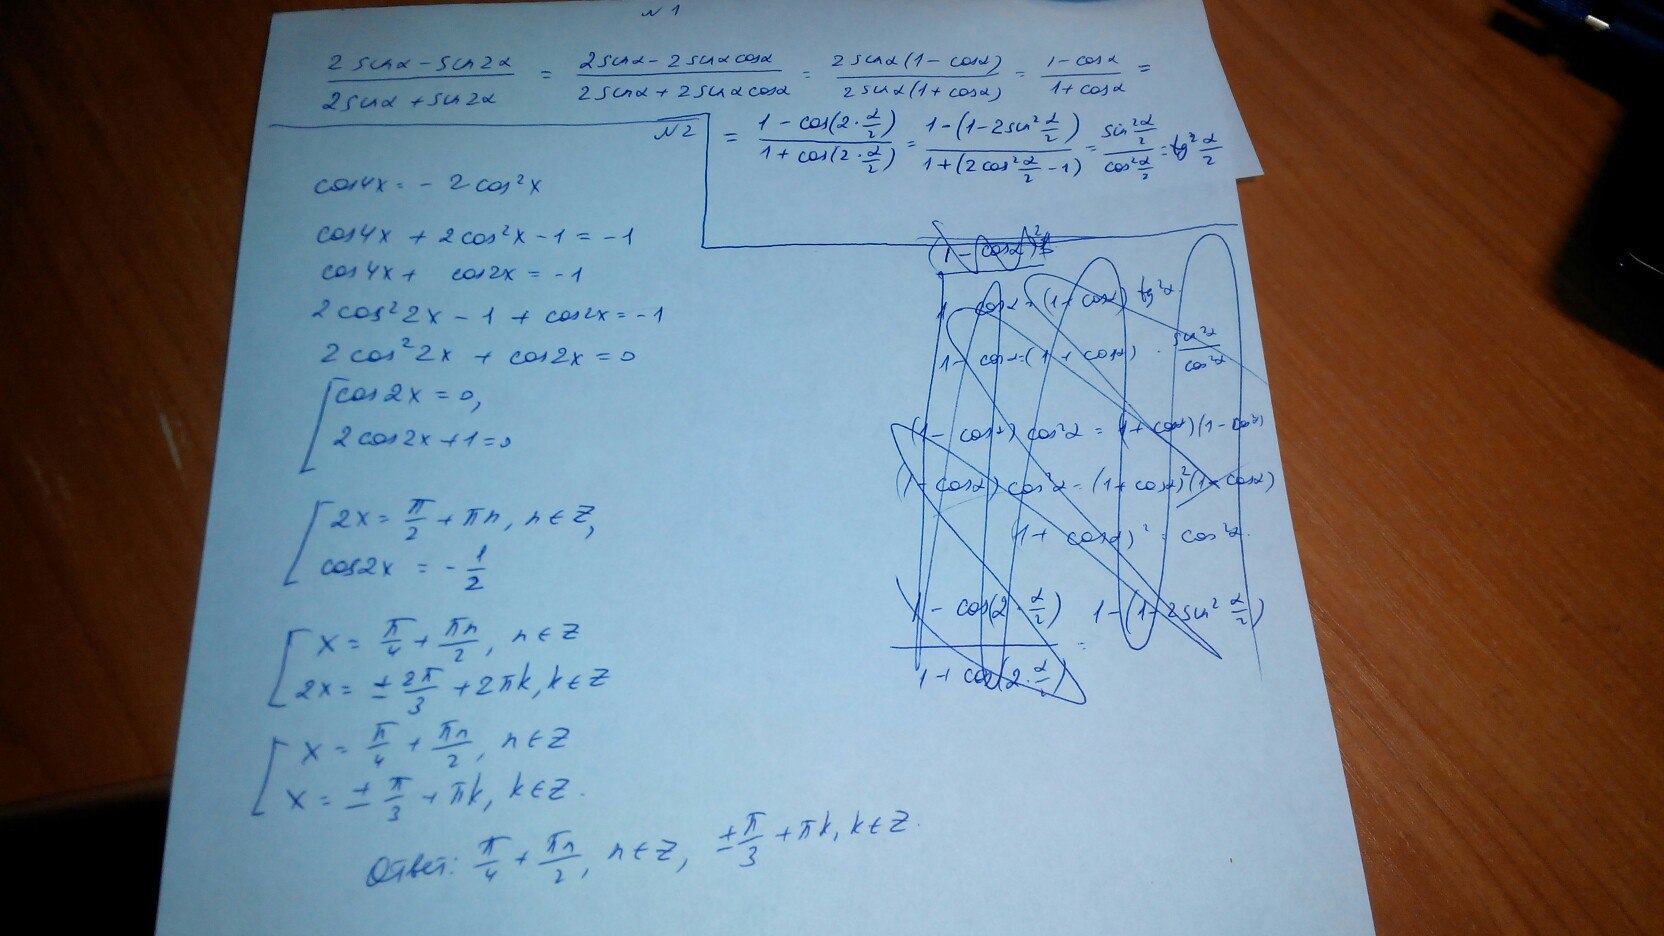 N 1
(2 sinα - sin2α)/(2 sinα + sin2α) = (2sinα - 2sinα cosα)/(2sinα + 2sinα cosα) = (2sinα(1 - cosα))/(2sinα(1 + cosα)) = (1 - cosα)/(1 + cosα) =
= (1 - cos(2·α/2))/(1 + cos(2·α/2)) = (1 - (1 - 2sin² α/2))/(1 + (2cos² α/2 - 1)) = (sin² α/2)/(cos² α/2) = tg² α/2
N 2
cos4x = - 2cos²x
cos4x + 2cos²x - 1 = -1
cos4x + cos2x = -1
2cos²2x - 1 + cos2x = -1
2cos²2x + cos2x = 0
[ cos2x = 0,
2cos2x + 1 = 0
[ 2x = π/2 + πn, n ∈ Z,
cos2x = - 1/2
[ x = π/4 + πn/2, n ∈ Z
2x = ± 2π/3 + 2πk, k ∈ Z
[ x = π/4 + πn/2, n ∈ Z
x = ± π/3 + πk, k ∈ Z.
Ответ: π/4 + πn/2, n ∈ Z, ± π/3 + πk, k ∈ Z.
1 - cosα = (1 + cosα) tg²α
1 - cosα = (1 + cosα) · sin²α/cos²α
(1 - cosα) cos²α = (1 + cosα)(1 - cos²α)
(1 - cosα) cos²α = (1 + cosα)²(1 - cosα)
(1 + cosα)² = cos²α.
(1 - cos(2·α/2))/(1 + cos(2·α/2)) = 1 - (1 - 2sin² α/2)